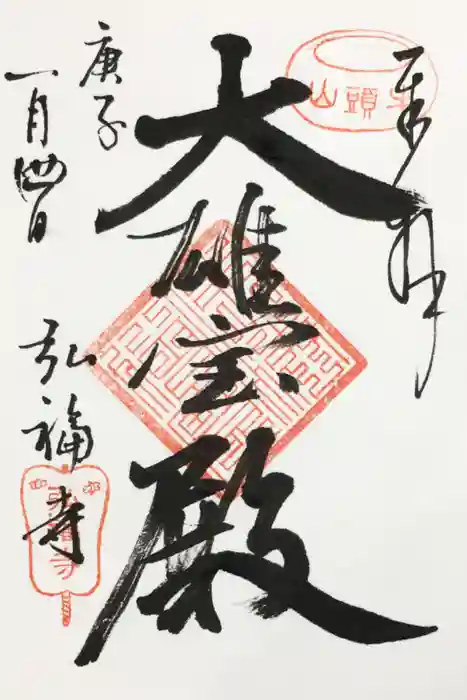 奉拝
牛頭山
大雄宝殿
庚子
一月四日
弘福寺